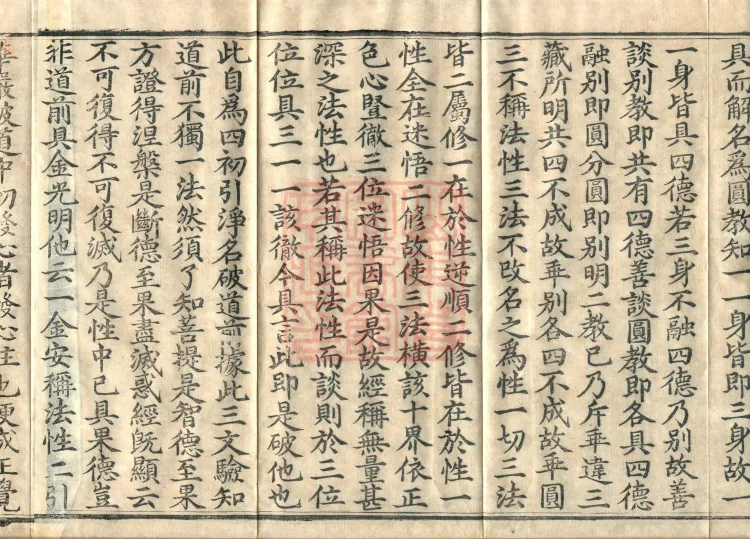 具而解名為圓教知一一身皆即三身故一
一身皆具四德若三身不融四德乃別故善
談別教即共有四德善談圓教即各具四德
融別即圓分圓即別明二教已乃斥乖違三
藏所明共四不成故乖別各四不成故乖圓
三不稱法性三法不改名之為性一切三法
皆二屬修一在於性逆順二修皆在於性一
性全在迷悟二修故使三法橫該十界依正
色心豎徹三位迷悟因果是故經稱無量甚
深之法性也若其稱此法性而談則於三位
位位具三一一該徹今具言此即是破他也
此自為四初引淨名破道據此三文驗知
道前不獨一法然須了知菩提是智德至果
方證得涅槃是斷德至果盡滅惑經既顯云
不可復得不可復滅乃是性中已具果德豈
非道前具金光明他云一金安稱法性二引
華嚴破道中初發心者發心住也便成正覺